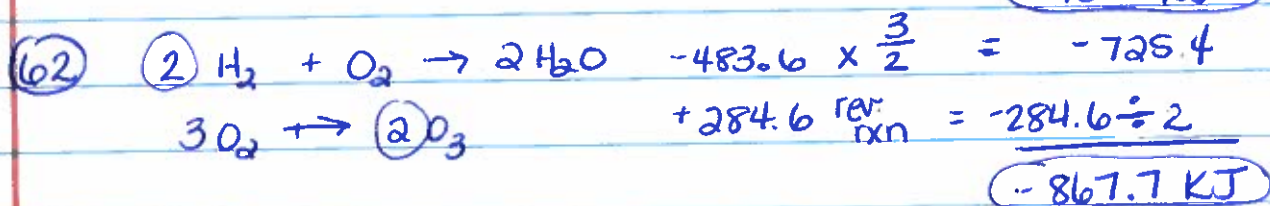 62 2 H₂ + O₂ → 2 H₂O -483.6 x 3/2 = -725.4
3O₂ → 2O₃ +284.6 rev. rxn = -284.6 ÷ 2
-867.7 KJ